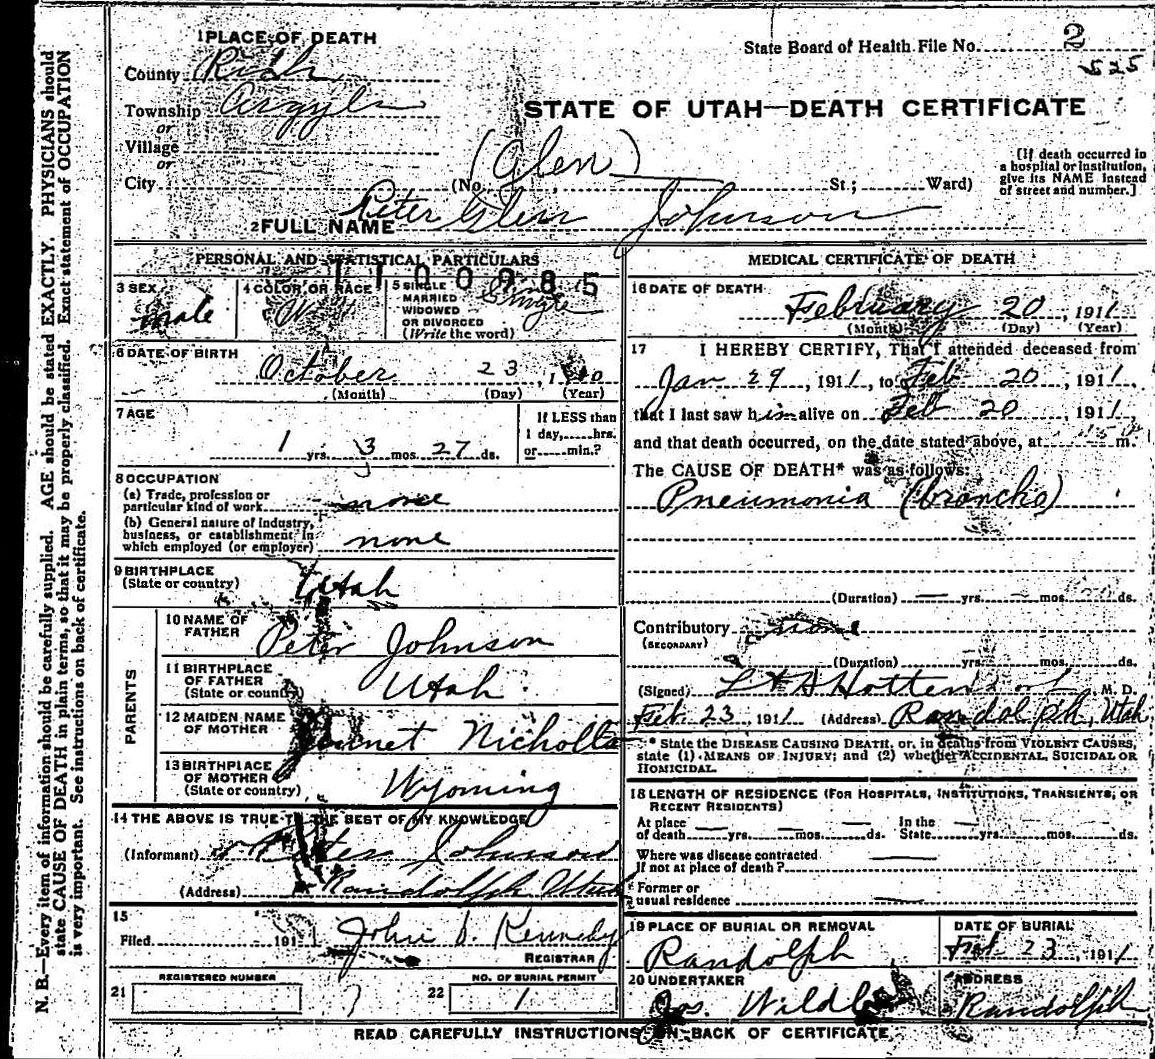 1 PLACE OF DEATH
County Rich
Township Argyle
or
Village
or
City
State Board of Health File No. 2
525
STATE OF UTAH—DEATH CERTIFICATE
(Glen)
(No. St.; Ward)
[If death occurred in
a hospital or institution,
give its NAME instead
of street and number.]
2 FULL NAME Peter Glen Johnson
PERSONAL AND STATISTICAL PARTICULARS
3 SEX
male
4 COLOR OR RACE
W
5 SINGLE
MARRIED
WIDOWED
OR DIVORCED
(Write the word)
Single
6 DATE OF BIRTH
October 23, 1
(Month) (Day) (Year)
7 AGE
1 yrs. 3 mos. 27 ds.
If LESS than
1 day, hrs.
or min.?
8 OCCUPATION
(a) Trade, profession or
particular kind of work none
(b) General nature of industry,
business, or establishment in
which employed (or employer) none
9 BIRTHPLACE
(State or country) Utah
PARENTS
10 NAME OF
FATHER Peter Johnson
11 BIRTHPLACE
OF FATHER
(State or country) Utah
12 MAIDEN NAME
OF MOTHER
13 BIRTHPLACE
OF MOTHER
(State or country) Wyoming
14 THE ABOVE IS TRUE TO THE BEST OF MY KNOWLEDGE
(Informant) Peter Johnson
(Address) Randolph Utah
15
Filed 191
REGISTRAR
REGISTERED NUMBER
21
NO. OF BURIAL PERMIT
22 1
MEDICAL CERTIFICATE OF DEATH
16 DATE OF DEATH
February 20, 1911
(Month) (Day) (Year)
17 I HEREBY CERTIFY, That I attended deceased from
Jan 29, 1911, to Feb 20, 1911,
that I last saw him alive on Feb 20 1911,
and that death occurred, on the date stated above, at m.
The CAUSE OF DEATH* was as follows:
Pneumonia (broncho)
(Duration) yrs. mos. ds.
Contributory none
(SECONDARY)
(Duration) yrs. mos. ds.
(Signed) M. D.
Feb. 23, 1911 (Address) Randolph, Utah
* State the DISEASE CAUSING DEATH, or, in deaths from VIOLENT CAUSES,
state (1) MEANS OF INJURY; and (2) whether ACCIDENTAL, SUICIDAL OR
HOMICIDAL.
18 LENGTH OF RESIDENCE (FOR HOSPITALS, INSTITUTIONS, TRANSIENTS, OR
RECENT RESIDENTS)
At place
of death yrs. mos. ds.
In the
State yrs. mos. ds.
Where was disease contracted
if not at place of death?
Former or
usual residence
19 PLACE OF BURIAL OR REMOVAL
Randolph
DATE OF BURIAL
Feb. 23, 1911
20 UNDERTAKER
Jos. Wilde
ADDRESS
Randolph
READ CAREFULLY INSTRUCTIONS ON BACK OF CERTIFICATE
N. B.—Every item of information should be carefully supplied. AGE should be stated EXACTLY. PHYSICIANS should
state CAUSE OF DEATH in plain terms, so that it may be properly classified. Exact statement of OCCUPATION
is very important. See instructions on back of certificate.